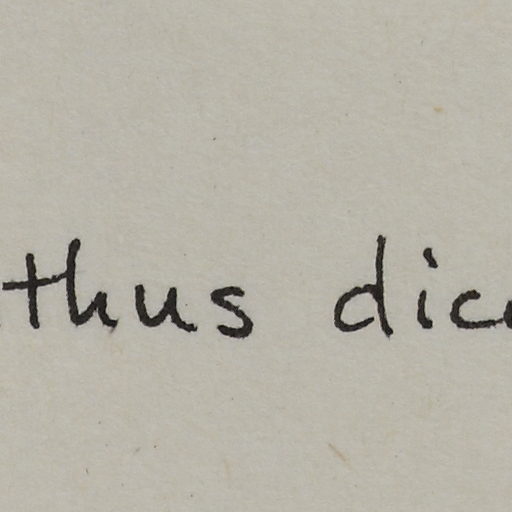 thus dic